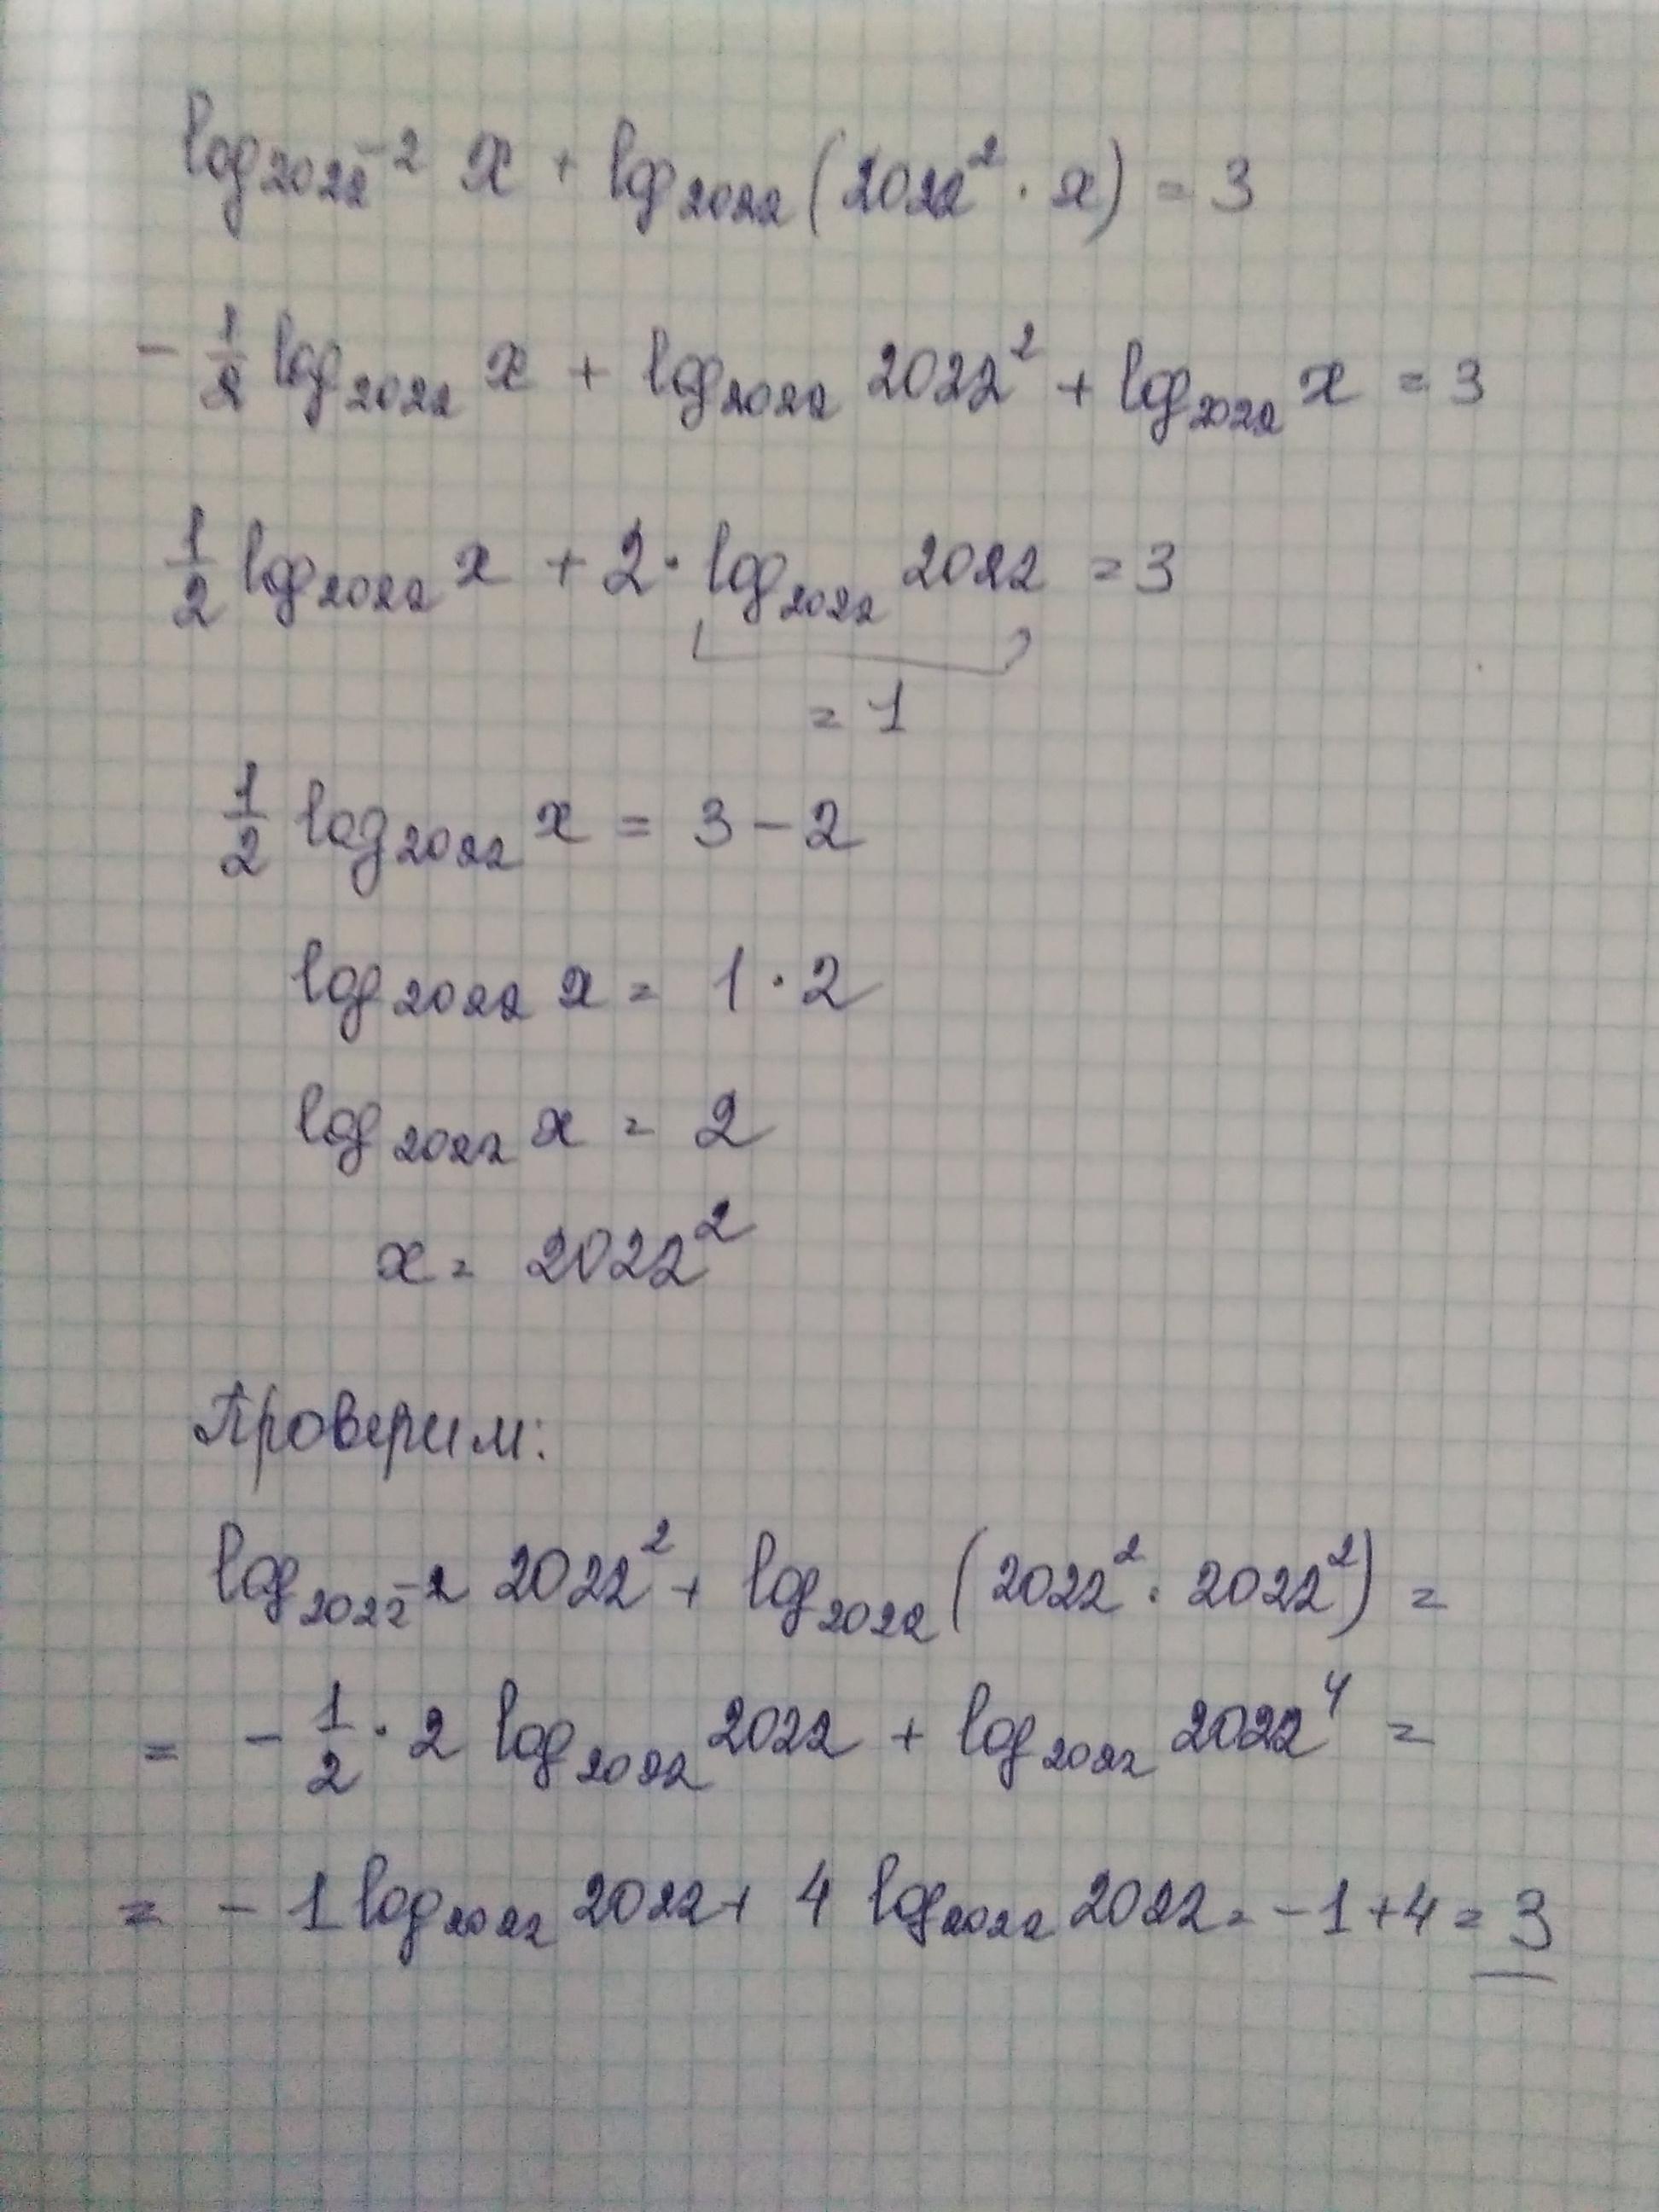 log₂₀₂₂⁻² x + log₂₀₂₂(2022² · x) = 3
- 1/2 log₂₀₂₂ x + log₂₀₂₂ 2022² + log₂₀₂₂ x = 3
1/2 log₂₀₂₂ x + 2 · log₂₀₂₂ 2022 = 3
= 1
1/2 log₂₀₂₂ x = 3 - 2
log₂₀₂₂ x = 1 · 2
log₂₀₂₂ x = 2
x = 2022²
Проверим:
log₂₀₂₂⁻² 2022² + log₂₀₂₂(2022² · 2022²) =
= - 1/2 · 2 log₂₀₂₂ 2022 + log₂₀₂₂ 2022⁴ =
= - 1 log₂₀₂₂ 2022 + 4 log₂₀₂₂ 2022 = -1 + 4 = 3